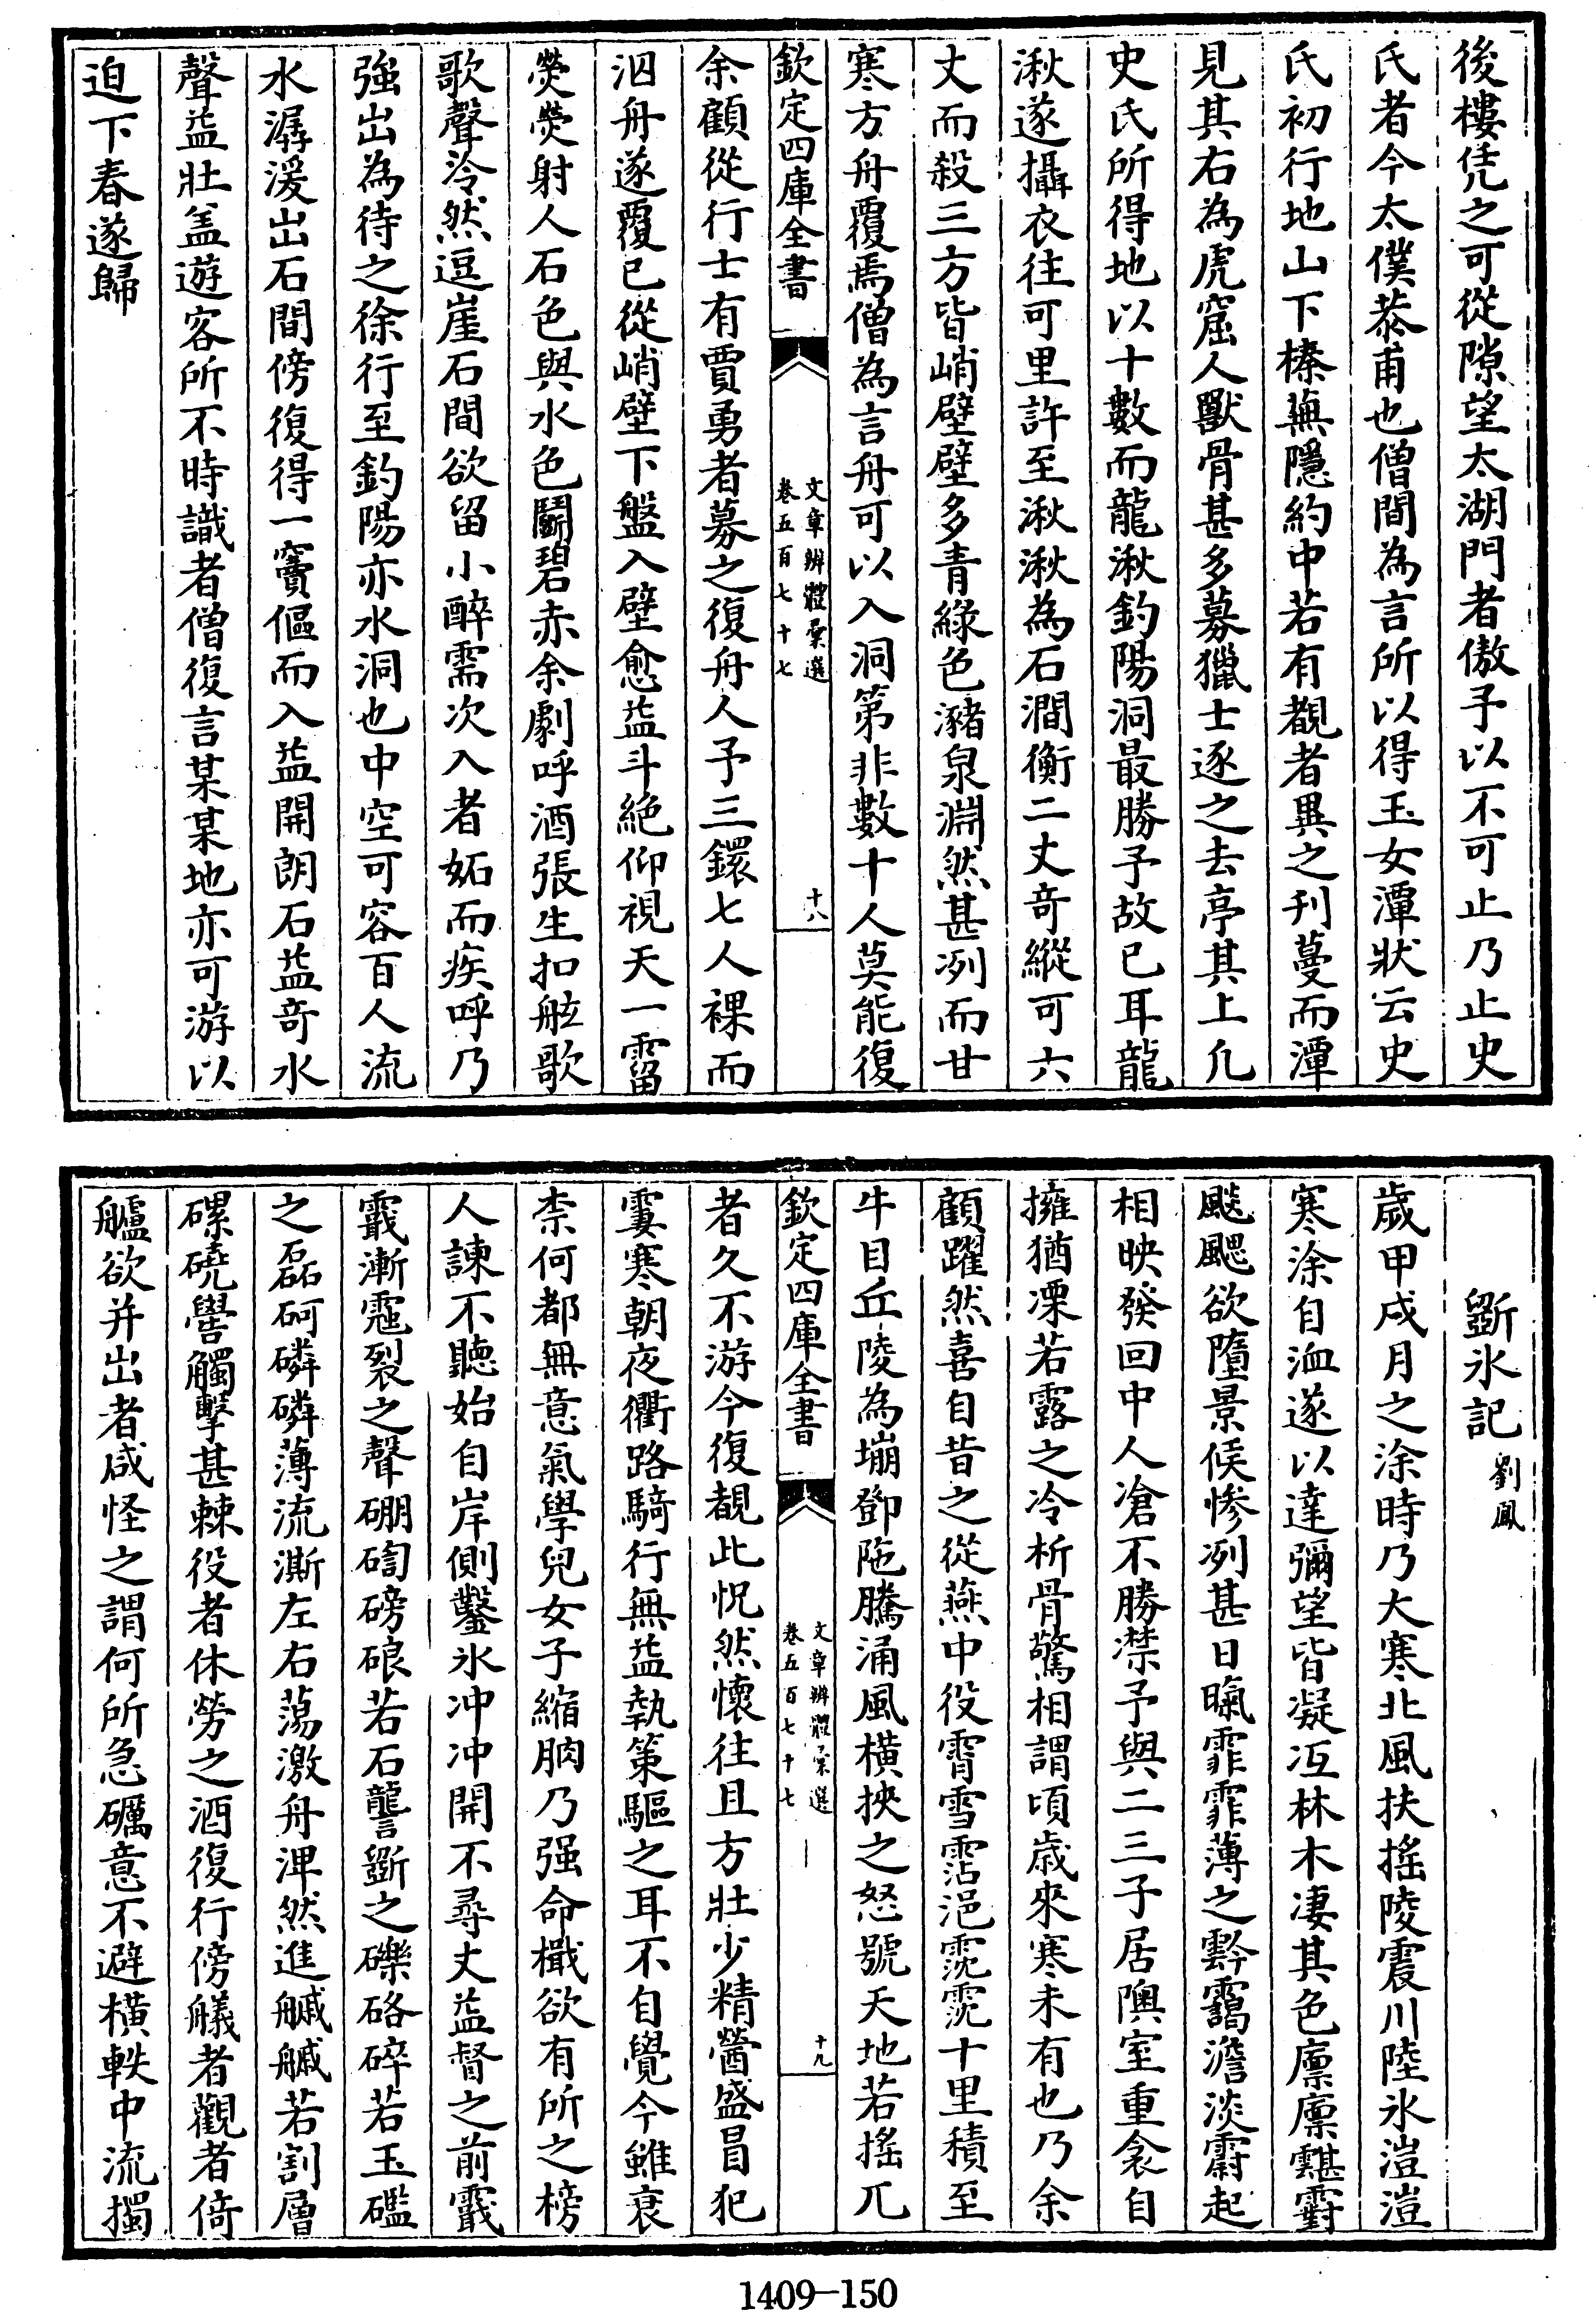 後樓凭之可從隙望太湖門者傲予以不可止乃止史
氏者今太僕恭甫也僧間為言所以得玉女潭狀云史
氏初行地山下榛蕪隱約中若有覩者異之刋蔓而潭
見其右為虎窟人獸骨甚多募獵士逐之去亭其上凢
史氏所得地以十數而龍湫釣陽洞最勝予故已耳龍
湫遂攝衣往可里許至湫湫為石澗衡二丈竒縱可六
丈而殺三方皆峭壁壁多青綠色瀦泉淵然甚冽而甘
寒方舟覆焉僧為言舟可以入洞第非數十人莫能復
欽定四庫全書
文章辨體彙選
卷五百七十七
十八
余顧從行士有賈勇者募之復舟人予三鐶七人祼而
泅舟遂覆已從峭壁下盤入壁愈益斗絶仰視天一霤
熒熒射人石色與水色鬬碧赤余劇呼酒張生扣舷歌
歌聲泠然逗崖石間欲留小醉需次入者妬而疾呼乃
強出為待之徐行至釣陽亦水洞也中空可容百人流
水潺湲出石間傍復得一竇傴而入益開朗石益竒水
聲益壯盖遊客所不時識者僧復言某某地亦可游以
迫下舂遂歸
斲氷記
劉鳳
歲甲戌月之涂時乃大寒北風扶搖陵震川陸氷溰溰
寒涂自洫遂以達彌望皆凝冱林木凄其色廪廪䨴霨
颷颸欲墮景候慘冽甚日㬢霏霏薄之黔靄澹淡霨起
相映發回中人凔不勝凚予與二三子居隩室重衾自
擁猶凓若露之冷析骨驚相謂頃歲來寒未有也乃余
顧躍然喜自昔之從燕中役霄雪霑浥霃霃十里積至
牛目丘陵為塴鄧陁騰涌風横挾之怒號天地若搖兀
欽定四庫全書
文章辨體彙選
卷五百七十七
十九
者久不游今復覩此怳然懷往且方壯少精謷盛冒犯
霋寒朝夜衢路騎行無益執策驅之耳不自覺今雖衰
柰何都無意氣學兒女子縮朒乃强命檝欲有所之榜
人諫不聽始自岸側鑿氷冲冲開不尋丈益督之前霵
霵漸霮裂之聲硼㗊磅硠若石礱斲之礫硌碎若玉礛
之磊砢磷磷薄流澌左右蕩激舟渒然進艬艬若割層
磥磽礐觸擊甚棘役者休勞之酒復行傍艤者觀者倚
艫欲并出者咸怪之謂何所急礪意不避横軼中流擉
1409—150